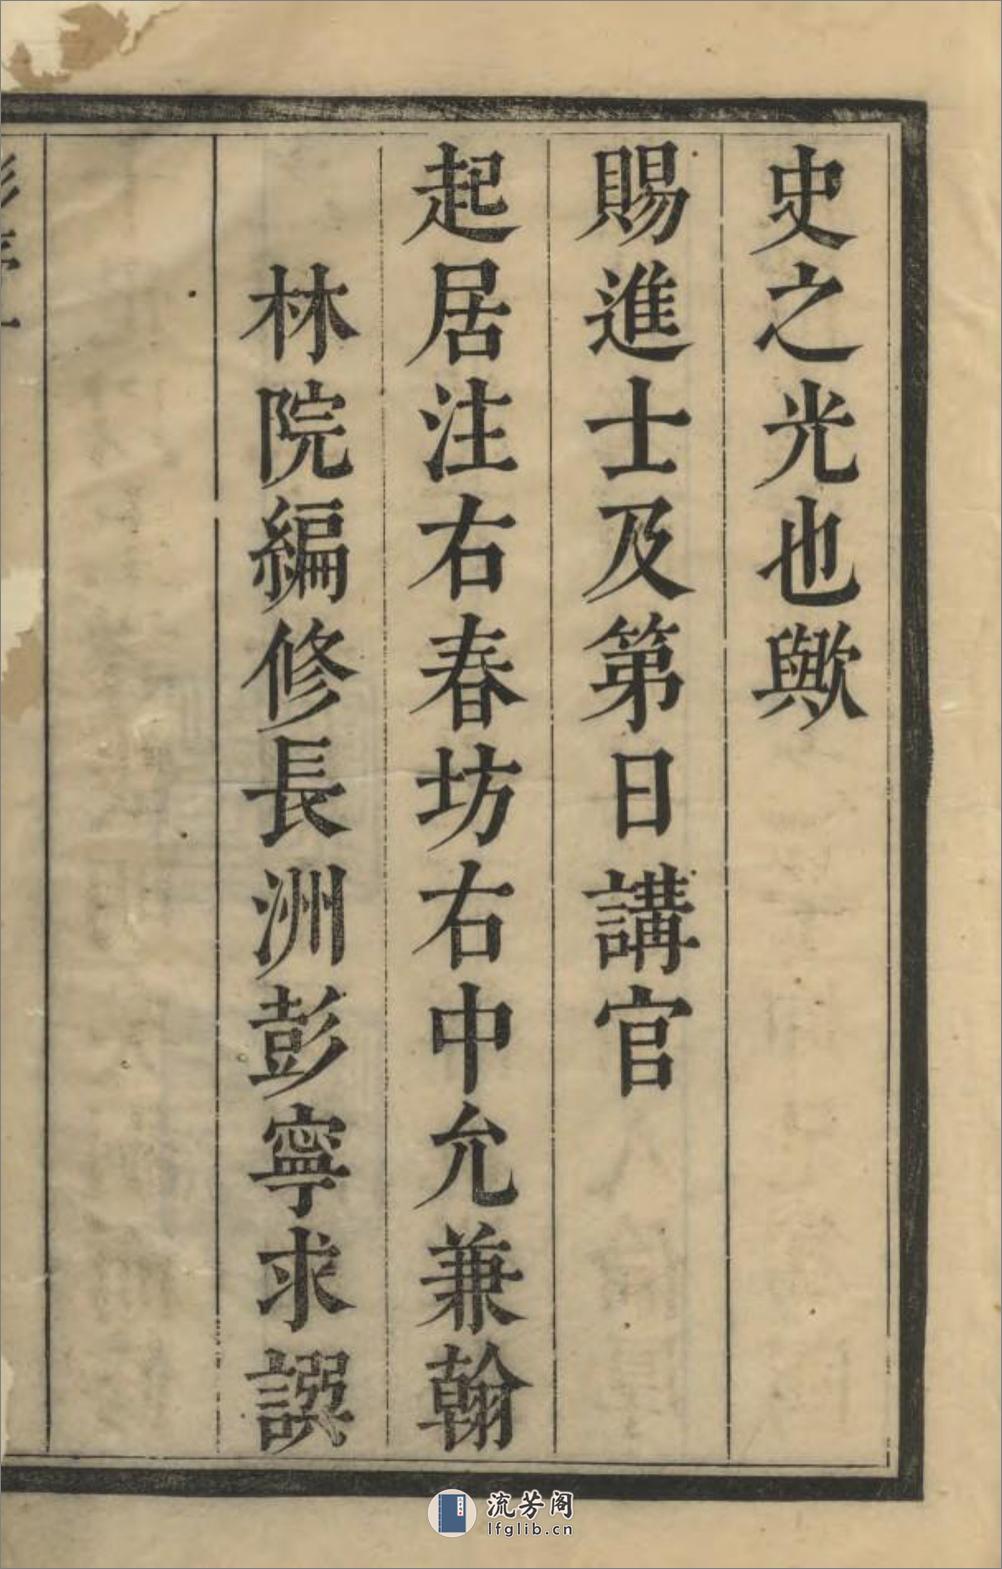 史之光也歟
賜進士及第日講官
起居注右春坊右中允兼翰
林院編修長洲彭寧求譔
流芳阁
lfglib.cn